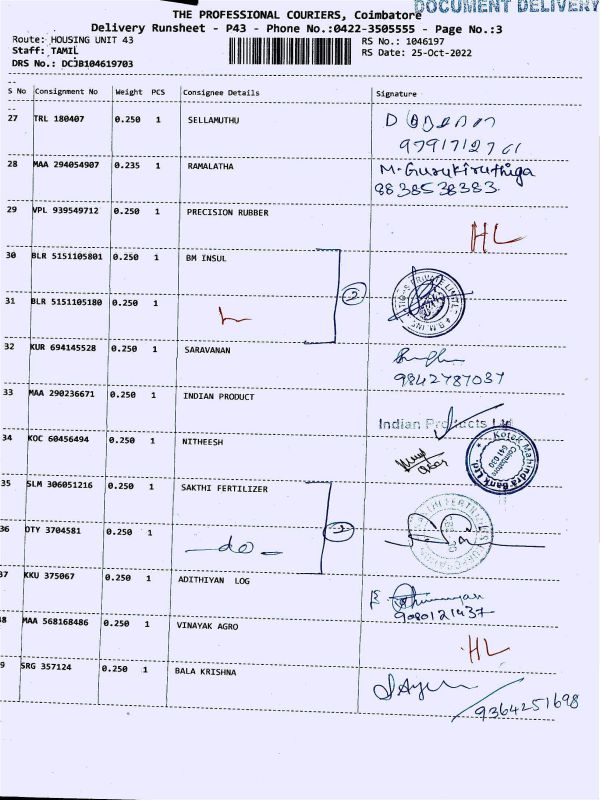 DOCUMENT DELIVERY
THE PROFESSIONAL COURIERS, Coimbatore
Delivery Runsheet - P43 - Phone No.:0422-3505555 - Page No.:3
Route: HOUSING UNIT 43
RS No.: 1046197
Staff: TAMIL
RS Date: 25-Oct-2022
DRS No.: DCJB104619703
S No Consignment No Weight PCS Consignee Details Signature
27 TRL 180407 0.250 1 SELLAMUTHU
9791712761
28 MAA 294054907 0.235 1 RAMALATHA M. Gurukiruthiga
8838538383
29 VPL 939549712 0.250 1 PRECISION RUBBER HL
30 BLR 5151105801 0.250 1 BM INSUL
2
31 BLR 5151105180 0.250 1
32 KUR 694145528 0.250 1 SARAVANAN
9842787037
33 MAA 290236671 0.250 1 INDIAN PRODUCT
Indian Products Ltd
34 KOC 60456494 0.250 1 NITHEESH
Kotak Mahindra Bank Ltd
Coimbatore
641 030
35 SLM 306051216 0.250 1 SAKTHI FERTILIZER
36 DTY 3704581 0.250 1 - do -
37 KKU 375067 0.250 1 ADITHIYAN LOG
9080121437
38 MAA 568168486 0.250 1 VINAYAK AGRO HL
39 SRG 357124 0.250 1 BALA KRISHNA
9364251698